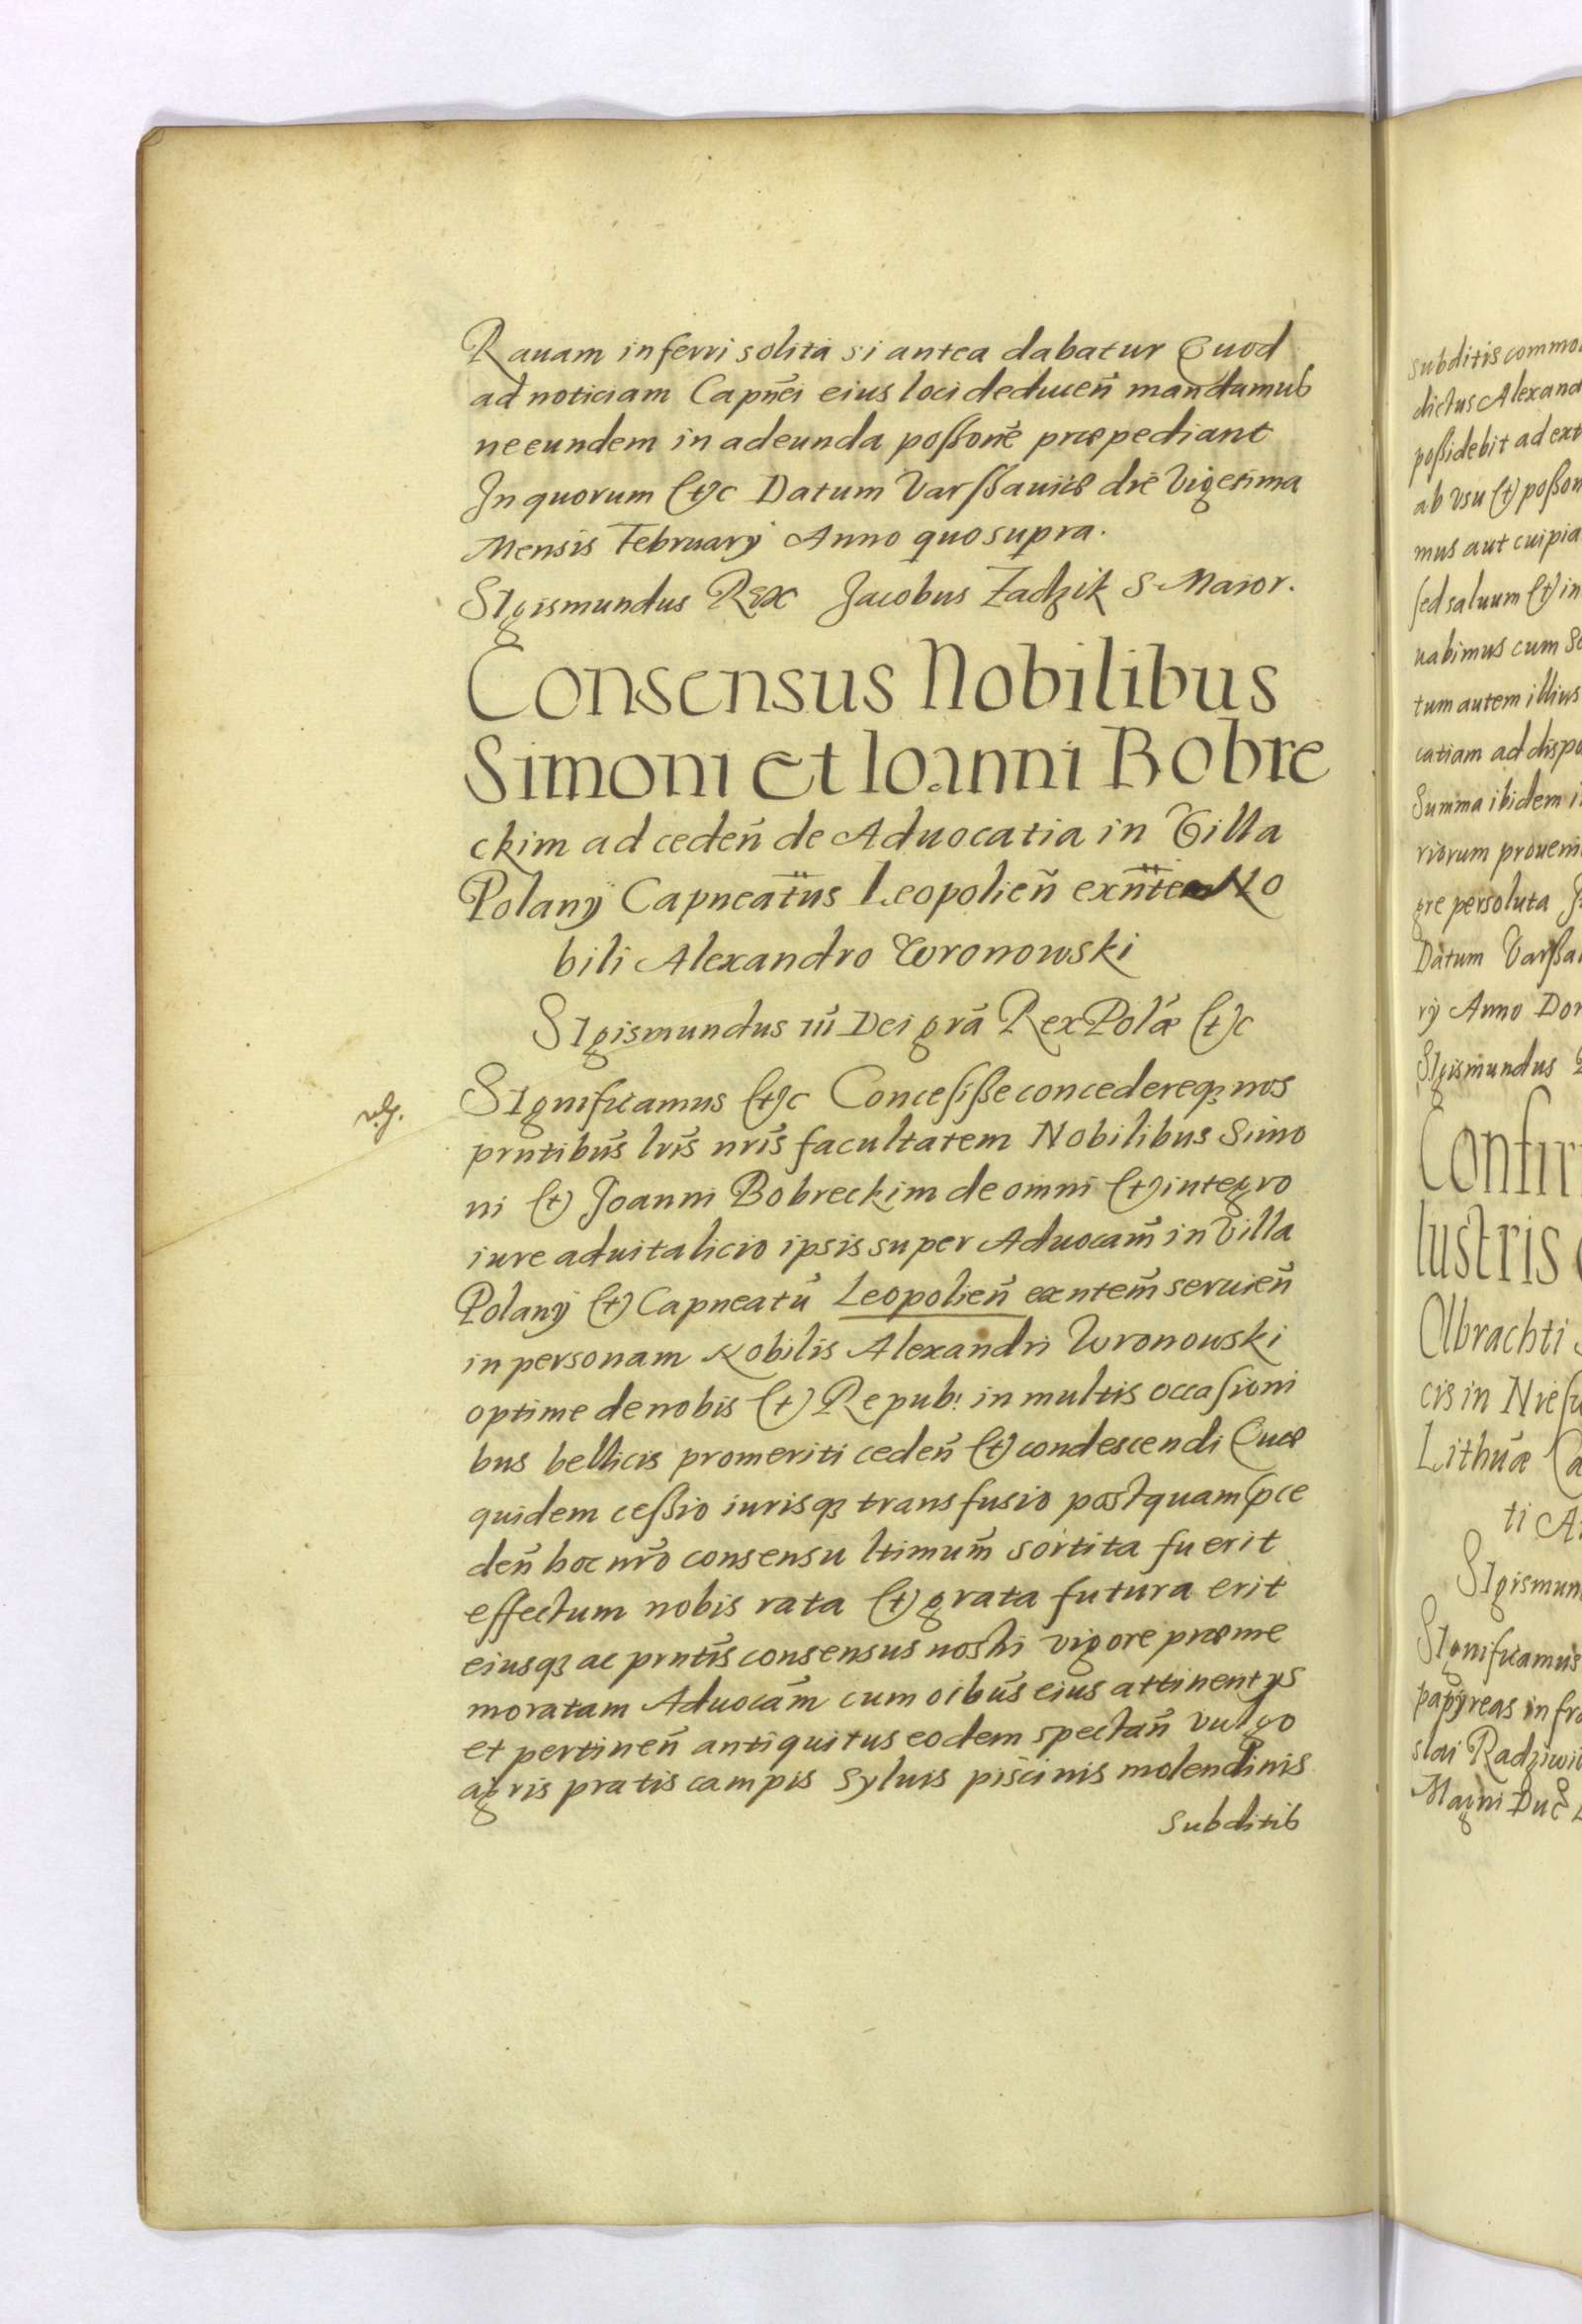 Rauam inferri solita si antea dabatur Quod
ad noticiam Capnei eius loci deducen̄ mandamus
ne eundem in adeunda poßone præpediant
In quorum (et)c Datum Varßauiæ die Vigesima
Mensis February Anno quo supra.
SIgismundus Rex Jacobus Zadzik S Maior.
Consensus Nobilibus
Simoni et Ioanni Bobre
ckim ad ceden̄ de Aduocatia in Villa
Polany Capneatus Leopolien̄ exnte No
bili Alexandro Wronowski
SIgismundus iii Dei gra Rex Polæ (et)c
SIgnificamus (et)c Concesiße concedereq3 nos
prntibus lris nris facultatem Nobilibus Simo
ni (et) Joanni Bobreckim de omni (et) integro
iure aduitalicio ipsis super Aduocam in Villa
Polany (et) Capneatu Leopolien̄ exntem seruien̄
in personam Nobilis Alexandri Wronowski
optime de nobis (et) Repub: in multis occasioni
bus bellicis promeriti ceden̄ (et) condescendi Quæ
quidem ceßio iurisq3 transfusio postquam p ce
den̄ hoc nro consensu ltimum sortita fuerit
effectum nobis rata (et) grata futura erit
eiusq3 ac prntis consensus nostri vigore præme
moratam Aduocam cum oibus eius attinentys
et pertinen̄ antiquitus eodem spectan̄ vulgo
agris pratis campis syluis piscinis molendinis
subditis
subditis commo
dictus Alexand
poßidebit ad ext
ab vsu (et) poßon
mus aut cuipia
sed saluum (et) in
uabimus cum Se
tum autem illius
catiam ad dispo
Summa ibidem i
riorum proueni
gre persoluta
Datum Varßa
ry Anno Dor
SIgismundus
Confir
lustris
Olbrachti
cis in Niesu
Lithuæ Ca
ti A
SIgismun
SIgnificamus
papyreas infra
slai Radziwi
Magni Duc